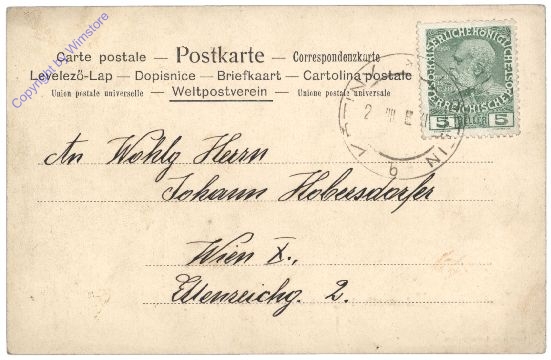 Copyright by Wimstore
Carte postale – Postkarte – Correspondenzkarte
Levelező-Lap – Dopisnice – Briefkaart – Cartolina postale
Union postale universelle – Weltpostverein – Unione postale universale
KAISERLICHE KÖNIGLICHE
ÖSTERREICHISCHE
5 HELLER 5
An Wohlg Herrn
Johann Hobersdorfer
Wien X.,
Ettenreichg. 2.